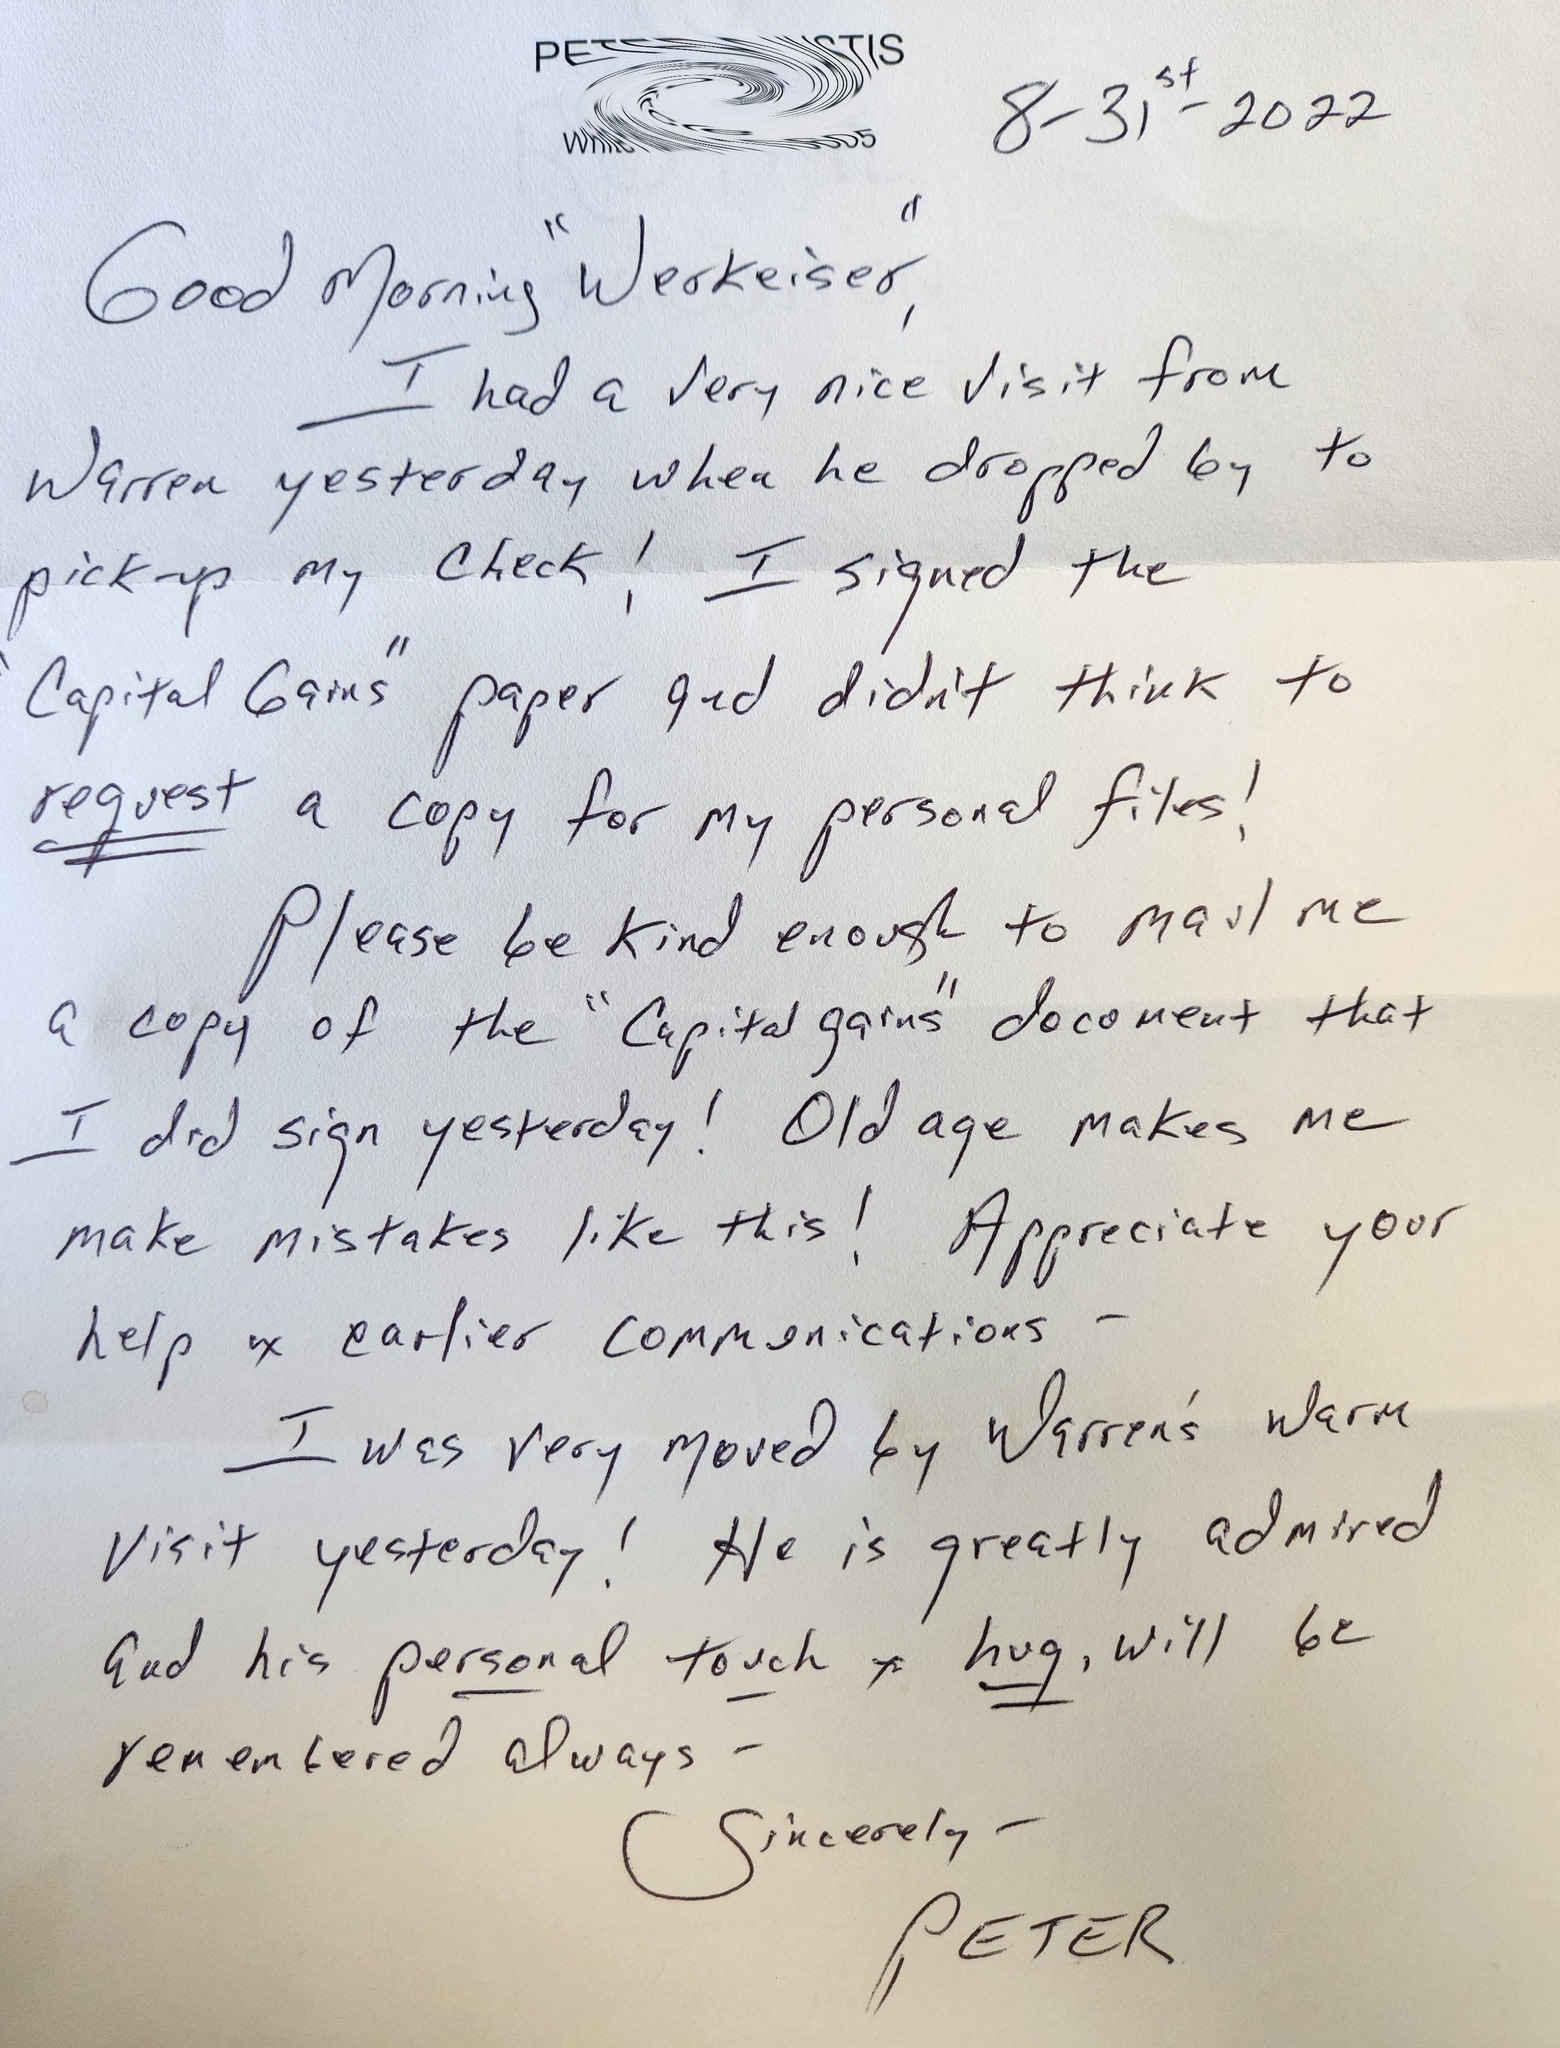 8-31st-2022
Good Morning "Werkeiser",
I had a very nice visit from
Warren yesterday when he dropped by to
pick-up my check! I signed the
"Capital Gains" paper and didn't think to
request a copy for my personal files!
Please be kind enough to mail me
a copy of the "Capital gains" document that
I did sign yesterday! Old age makes me
make mistakes like this! Appreciate your
help & earlier communications -
I was very moved by Warren's warm
visit yesterday! He is greatly admired
and his personal touch & hug, will be
remembered always -
Sincerely -
PETER